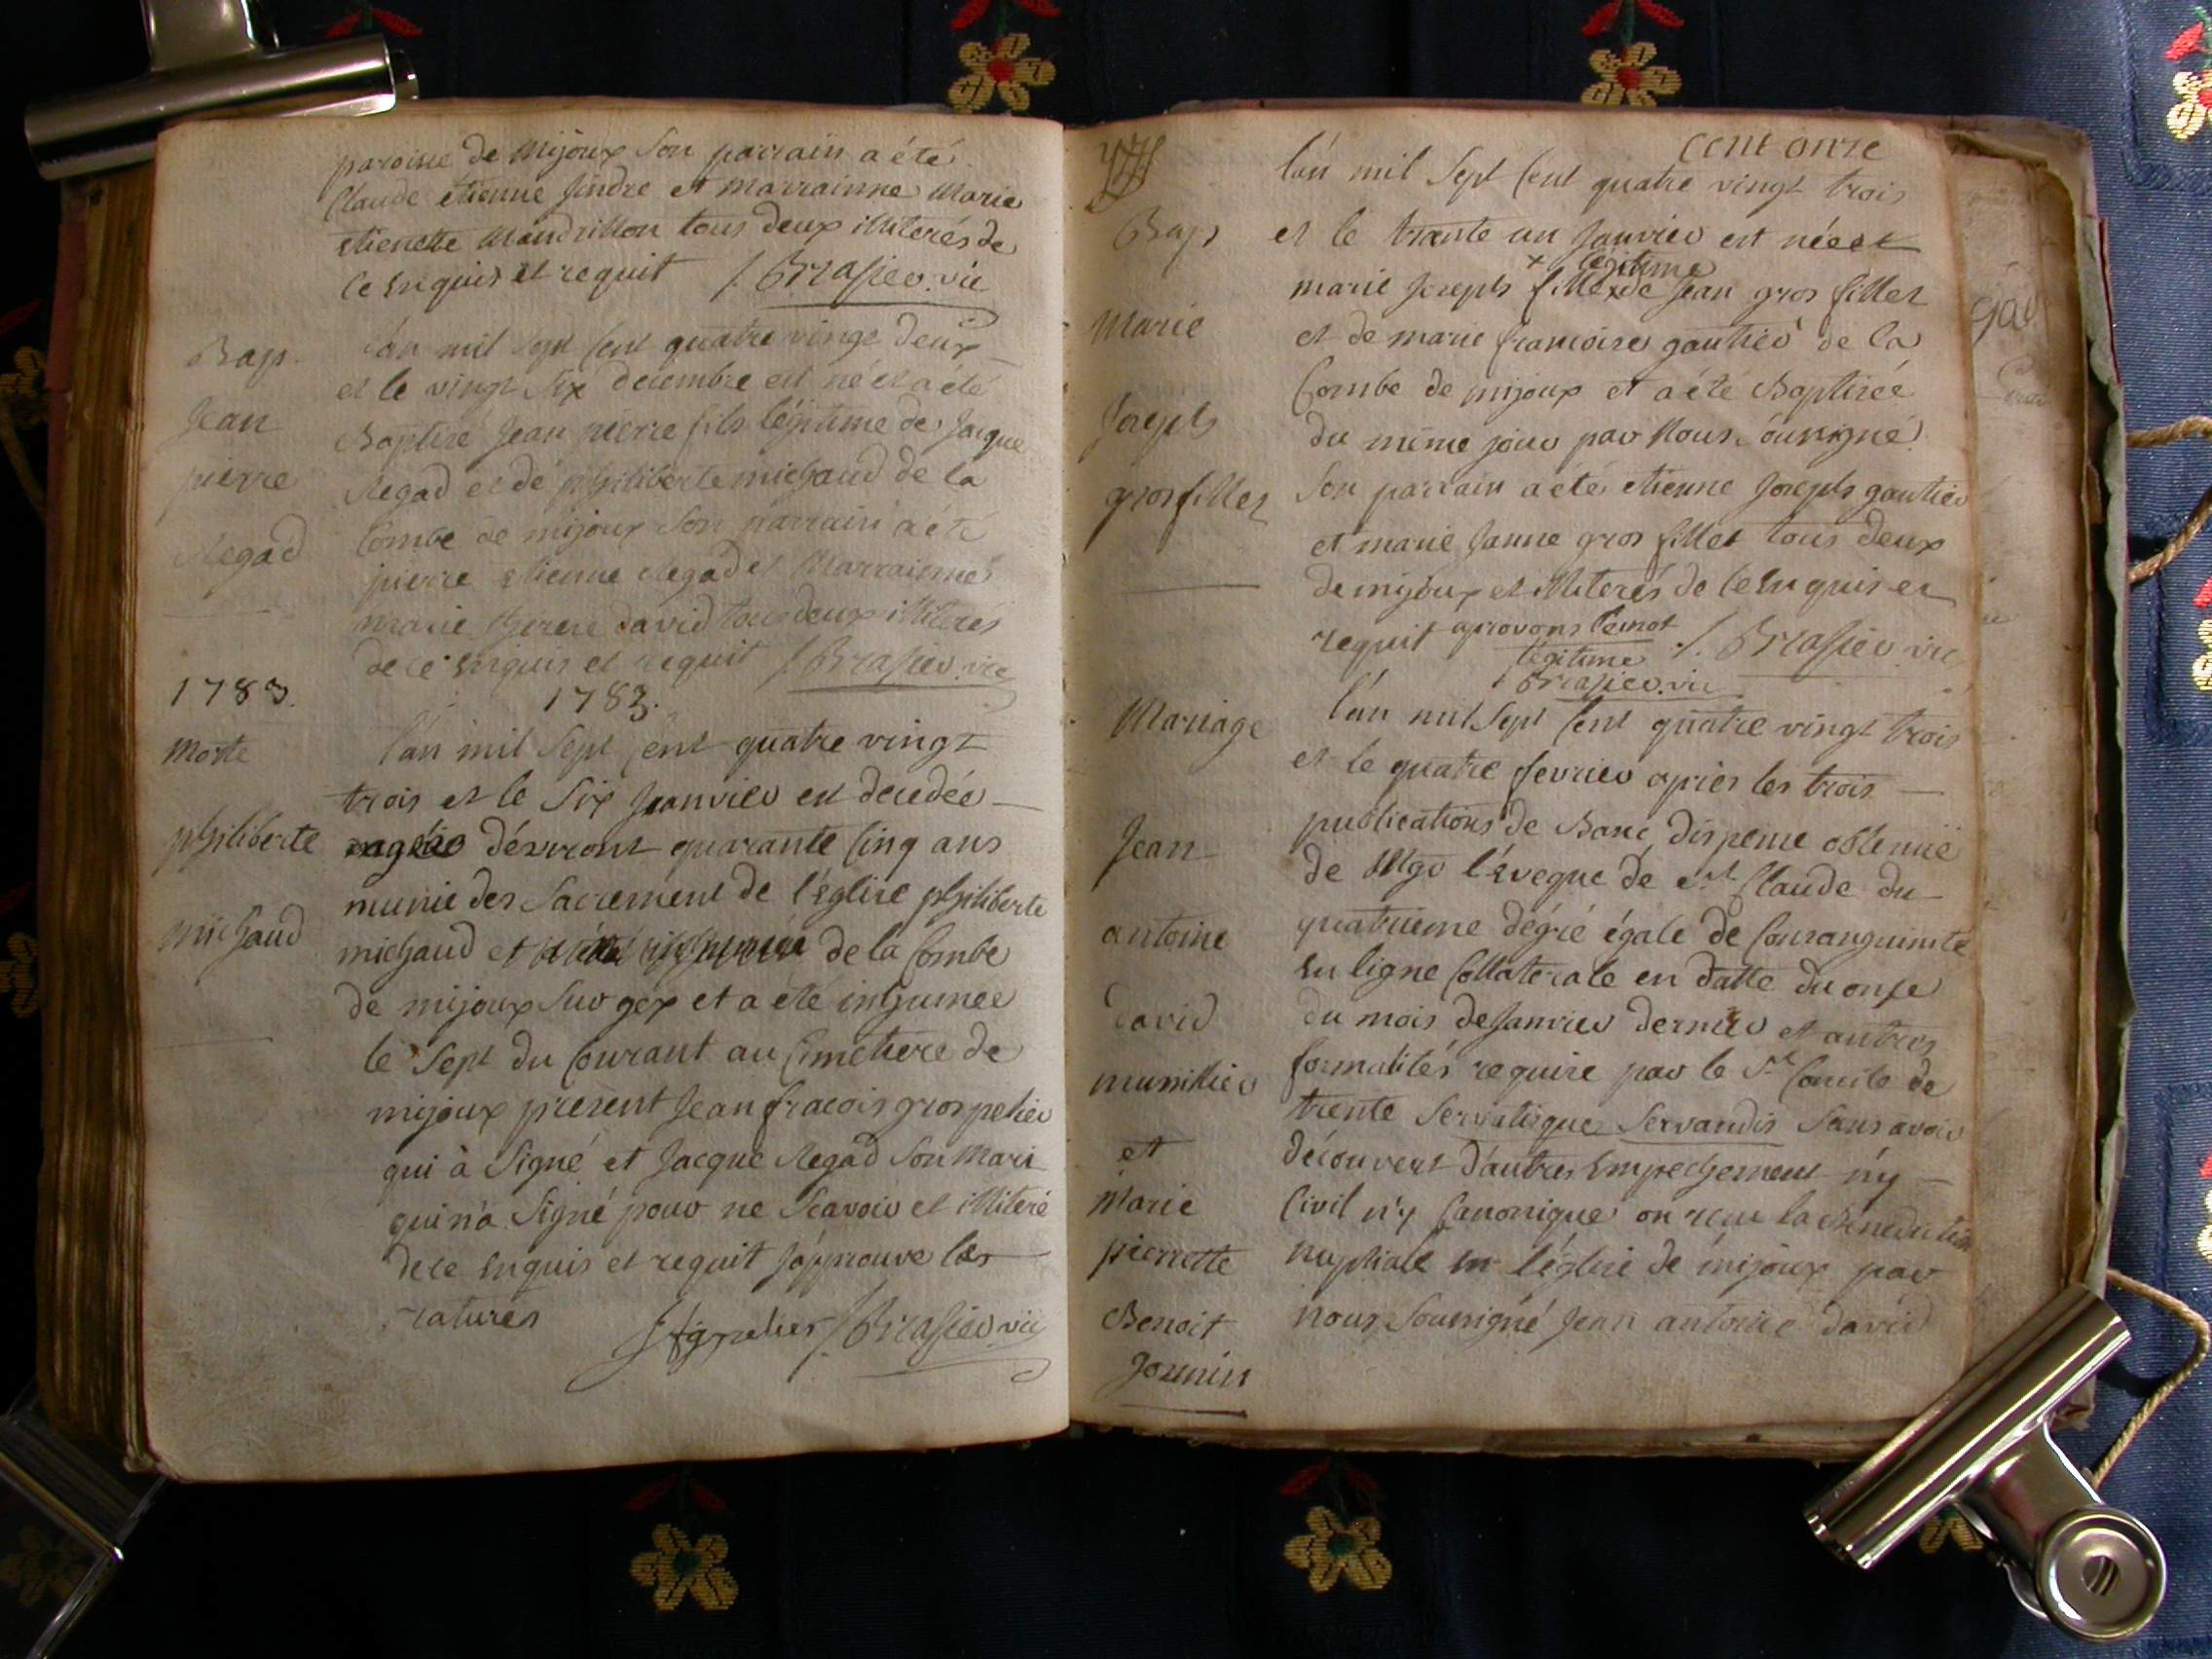 paroisse de mijoux son parrain a été
Claude étienne Jindre et marrainne Marie
etienette Mandrillon tous deux illiterés de
ce enquis et requit /. Brasier. vic
Bap.
Jean
pierre
Regad
l'an mil sept cent quatre vingt deux
et le vingt six decembre est né et a été
Baptisé Jean pierre fils légitime de Jacque
Regad et de philiberte michaud de la
Combe de mijoux son parrain a été
pierre etienne Regad et Marrainne
marie therese david tous deux illiterés
de ce enquis et requit /. Brasier. vic
1783. 1783.
Morte
philiberte
michaud
l'an mil sept cent quatre vingt
trois et le six Janvier est decedée
agée d'environt quarante cinq ans
munie des sacrement de l'église philiberte
michaud et de la Combe
de mijoux sur gex et a été inhumee
le sept du Courant au Cimetiere de
mijoux present Jean fracois grospelier
qui à signé et Jacque Regad son mari
qui n'a signé pour ne scavoir et illiteré
de ce enquis et requit J'approuve les
ratures Jfgpelier /. Brasier. vic
cent onze
Bap
Marie
Joseph
grosfillez
l'an mil sept cent quatre vingt trois
et le trante un Janvier est néeet
legitime
marie Joseph fille x de Jean gros fillez
et de marie francoise gautier de la
Combe de mijoux et a été Baptisée
du même jour par Nous sousigné
son parrain a été etienne Joseph gautier
et marie Janne gros fillet tous deux
de mijoux et illiterés de ce enquis et
requit aprovons le mot /. Brasier. vic
légitime
Brasier. vic
Mariage
Jean
antoine
david
munillier
et
Marie
pierrette
Benoit
Jounin
l'an mil sept cent quatre vingt trois
et le quatre fevrier après les trois
publications de Banc, dispense obtenuë
de Mgr l'évêque de st Claude du
quatrieme dégré égale de Consanguinité
en ligne Collaterale en datte du onze
du mois de Janvier dernier et autres
formalités requise par le st Concile de
trente servatisque servandis sans avoir
découvert d'autres Empechement n'y
Civil n'y Canonique on reçu la Bénédiction
nuptiale en l'église de mijoux par
nous soussigné Jean antoine david